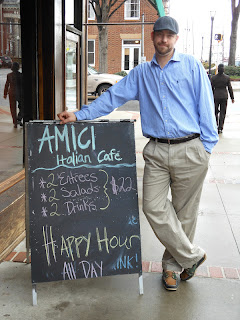 AMICI
Italian Café
*2 Entrées
*2 Salads
*2 Drinks
} $22
Happy Hour
All Day